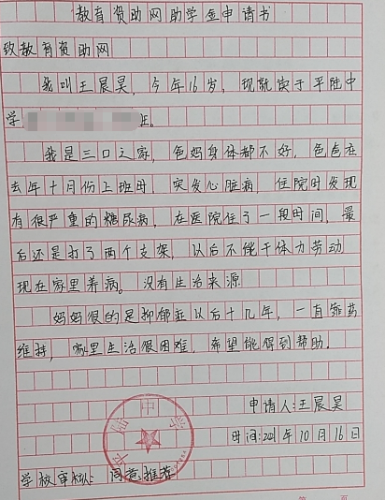 教育资助网助学金申请书
致教育资助网
我叫王晨昊，今年16岁，现就读于平陆中
学 班。
我是三口之家，爸妈身体都不好，爸爸在
去年十月份上班时，突发心脏病，住院时发现
有很严重的糖尿病，在医院住了一段时间，最
后还是打了两个支架，以后不能干体力劳动
现在家里养病。没有生活来源
妈妈很的是抑郁症以后十几年，一直靠药
维持，家里生活很困难，希望能得到帮助。
申请人:王晨昊
时间:2021年10月16日
学校审核: 同意推荐